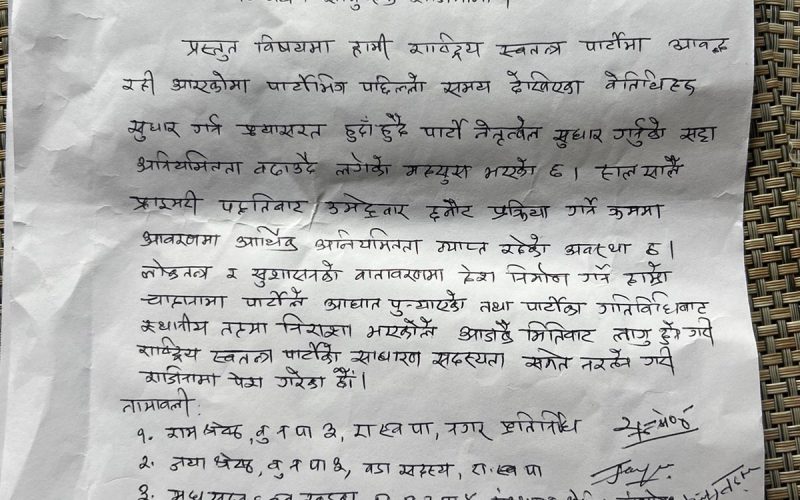 प्रस्तुत विषयमा हामी राष्ट्रिय स्वतन्त्र पार्टीमा आवद्ध
रही आएकोमा पार्टीभित्र पछिल्लो समय देखिएका वेतिथिहरु
सुधार गर्न प्रयासरत हुदाँ हुदै पार्टी नेतृत्वले सुधार गर्नुको सट्टा
अनियमितता बढाउदै लगेको महसुस भएको छ । हाल सालै
प्राइमरी पद्दतिबाट उमेद्वार छनौट प्रक्रिया गर्ने क्रममा
आवरणमा आर्थिक अनियमितता व्याप्त रहेको अवस्था छ ।
लोकतन्त्र र सुशासनको वातावरणमा देश निर्माण गर्ने हाम्रो
चाहानामा पार्टीले आघात पुर्‍याएको तथा पार्टीका गतिविधिबाट
स्थानीय तहमा निराशा भएकोले आजैकै मितिबाट लागु हुने गरी
राष्ट्रिय स्वतन्त्र पार्टीको साधारण सदस्यता समेत नरहने गरी
राजिनामा पेश गरेका छौं ।
नामावली :
१. राम श्रेष्ठ, बु न पा ३, रा स्व पा, नगर प्रतिनिधि
२. जया श्रेष्ठ, बु न पा ३, वडा सदस्य, रा. स्व पा
३.